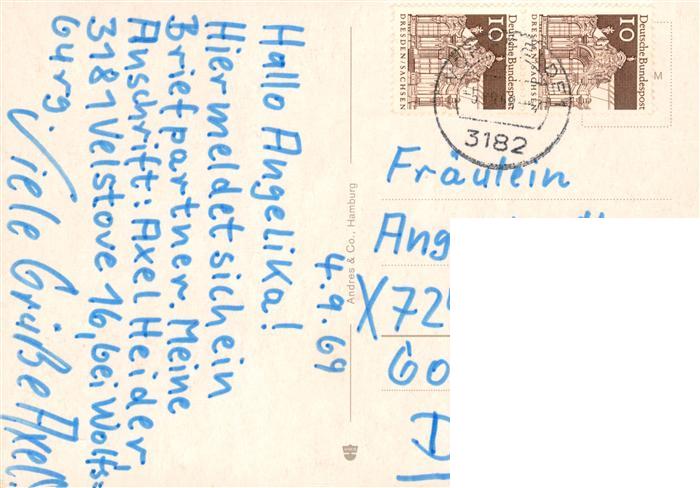 Hallo Angelika!
4.9.69
Hier meldet sich ein
Briefpartner. Meine
Anschrift: Axel Heider
3181 Velstove 16, bei Wolfs=
burg.
Viele Grüße Axel
Andres & Co., Hamburg
Deutsche Bundespost
10
DRESDEN/SACHSEN
Deutsche Bundespost
10
DRESDEN/SACHSEN
3182
M
Fräulein
Ang
X72
Go
D